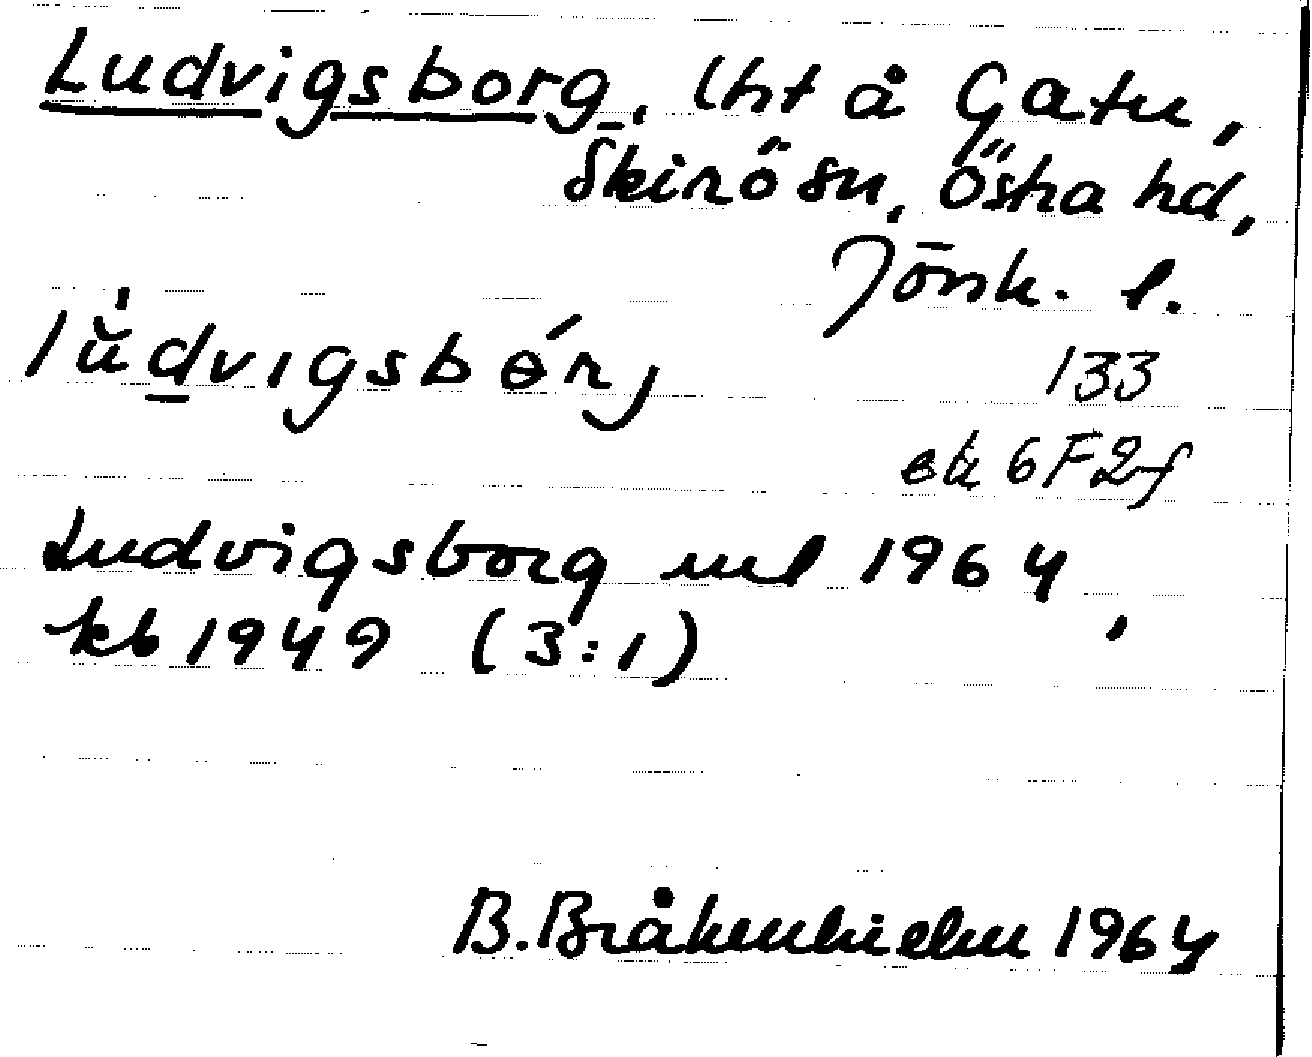 Ludvigsborg, lht å Gatu,
Skirö sn, Östra hd,
Jönk. l.
lùdvɪgsbɵ́rj
133
ek 6F2f
Ludvigsborg uul 1964,
kb 1949 (3:1)
B. Bråkenhielm 1964